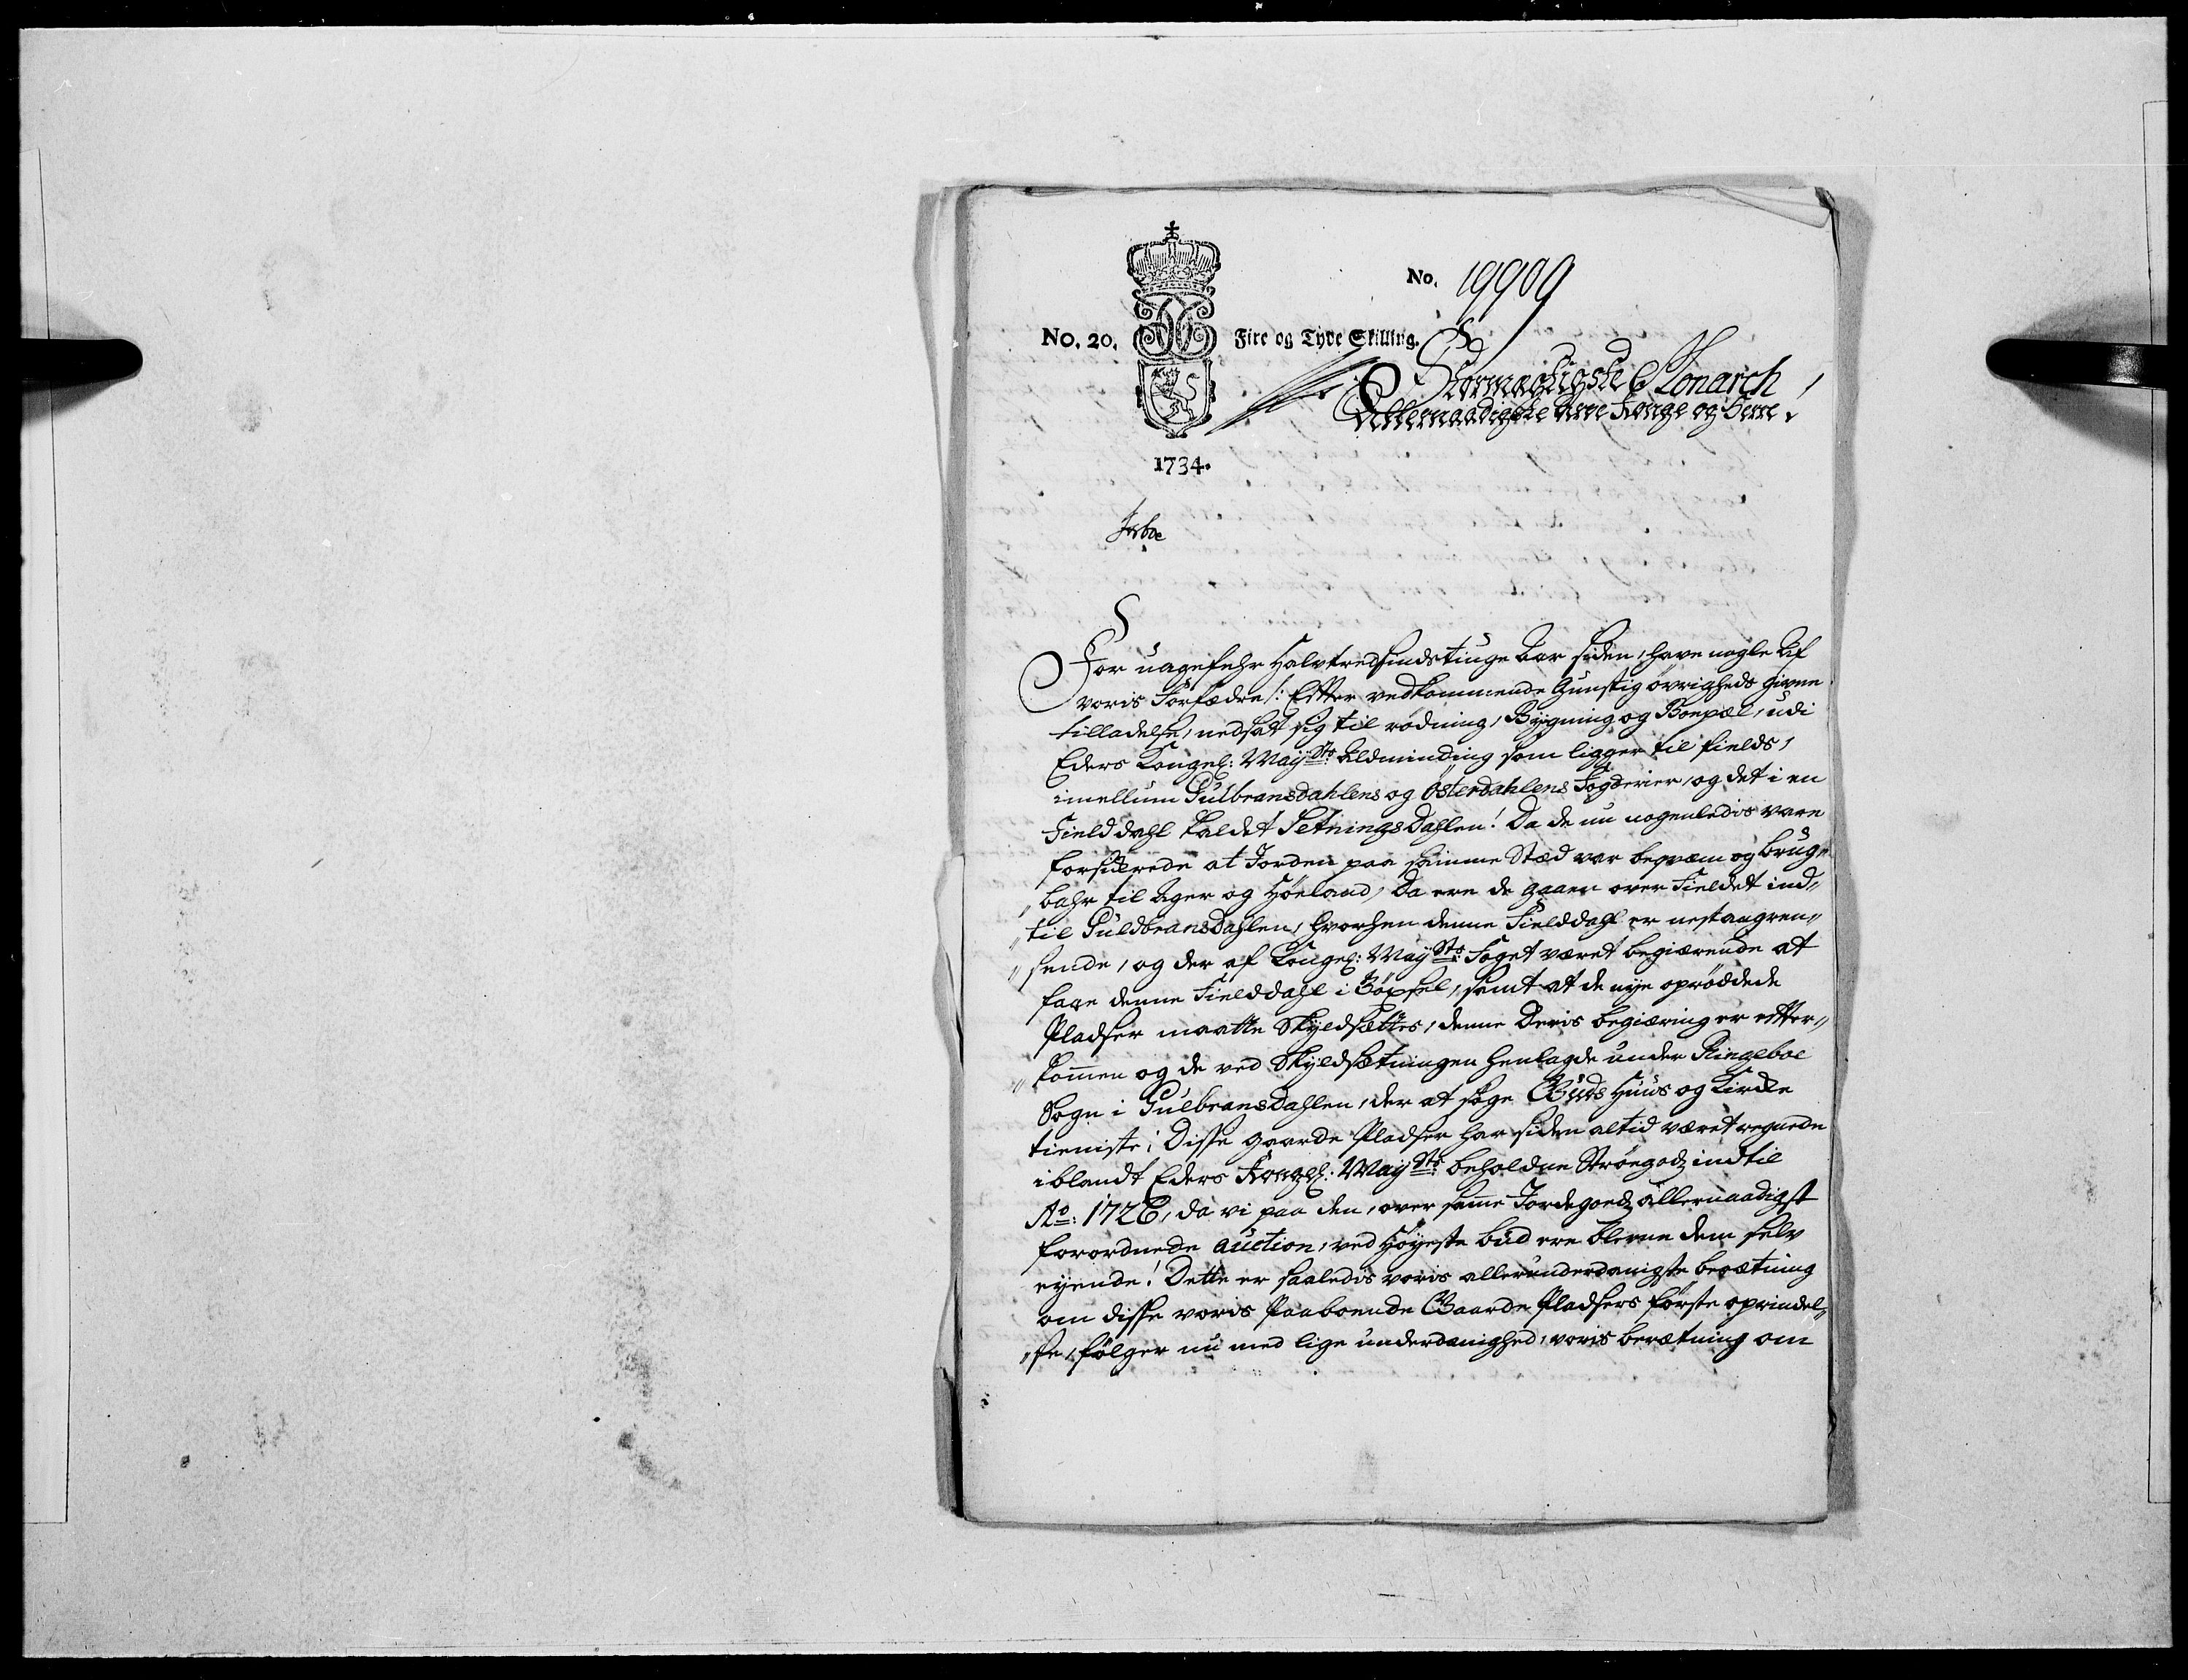 No. 19909
No. 20. Fire og Tyve Skilling.
Stormægtigste Monarch
Allernaadigste Arve Konge og Herre!
1734.
For uagefehr Halvtredsindstiuge Aar siden, have nogle Af
voris Forfædre /: Efter vedkommende Gunstig øvrigheds givne
tilladelse, nedsat sig til rødning, Bygning og Boepæl, udi
Eders Kongel: May.sts. Aldminding som ligger til fields,
imellum Gulbransdahlens og Østerdahlens Fogderier, og det i en
Field dahl kaldet Setningsdahlen! Da de nu nogenledis vare
forsikrede at Jorden paa samme Stæd var beqvæm og brug„
„bahr til Ager og Høeland, Da ere de gaaen over Fieldet ind„
„til Guldbransdahlen, hvorhen denne Fielddahl er nestangren„
„sende, og der af Kongel: May.sts: Foget været begiærende at
faae denne Fielddahl i Bøxsel, samt at de nye oprøddede
Pladser maatte Skyldsættes, denne Deris begiæring er efter„
„kommen og de ved Skyldsætningen henlagde under Ringeboe
Sogn i Gulbransdahlen, der at søge Guds Huus og Kirke
tieniste; Disse gaarde Pladser har siden altid været regnede
iblandt Eders Kongel: May.sts: beholdne Strøegodz indtil
Ao: 1726, da vi paa den, over samme Jordegoedz allernaadigst
forordnede auction, ved Høyeste bud ere blevne dem selv
eyende! Dette er saaledis voris allerunderdanigste berætning
om disse voris Paaboende Gaarde Pladsers første oprindel„
„se, følger nu med lige underdanighed, voris berætning om